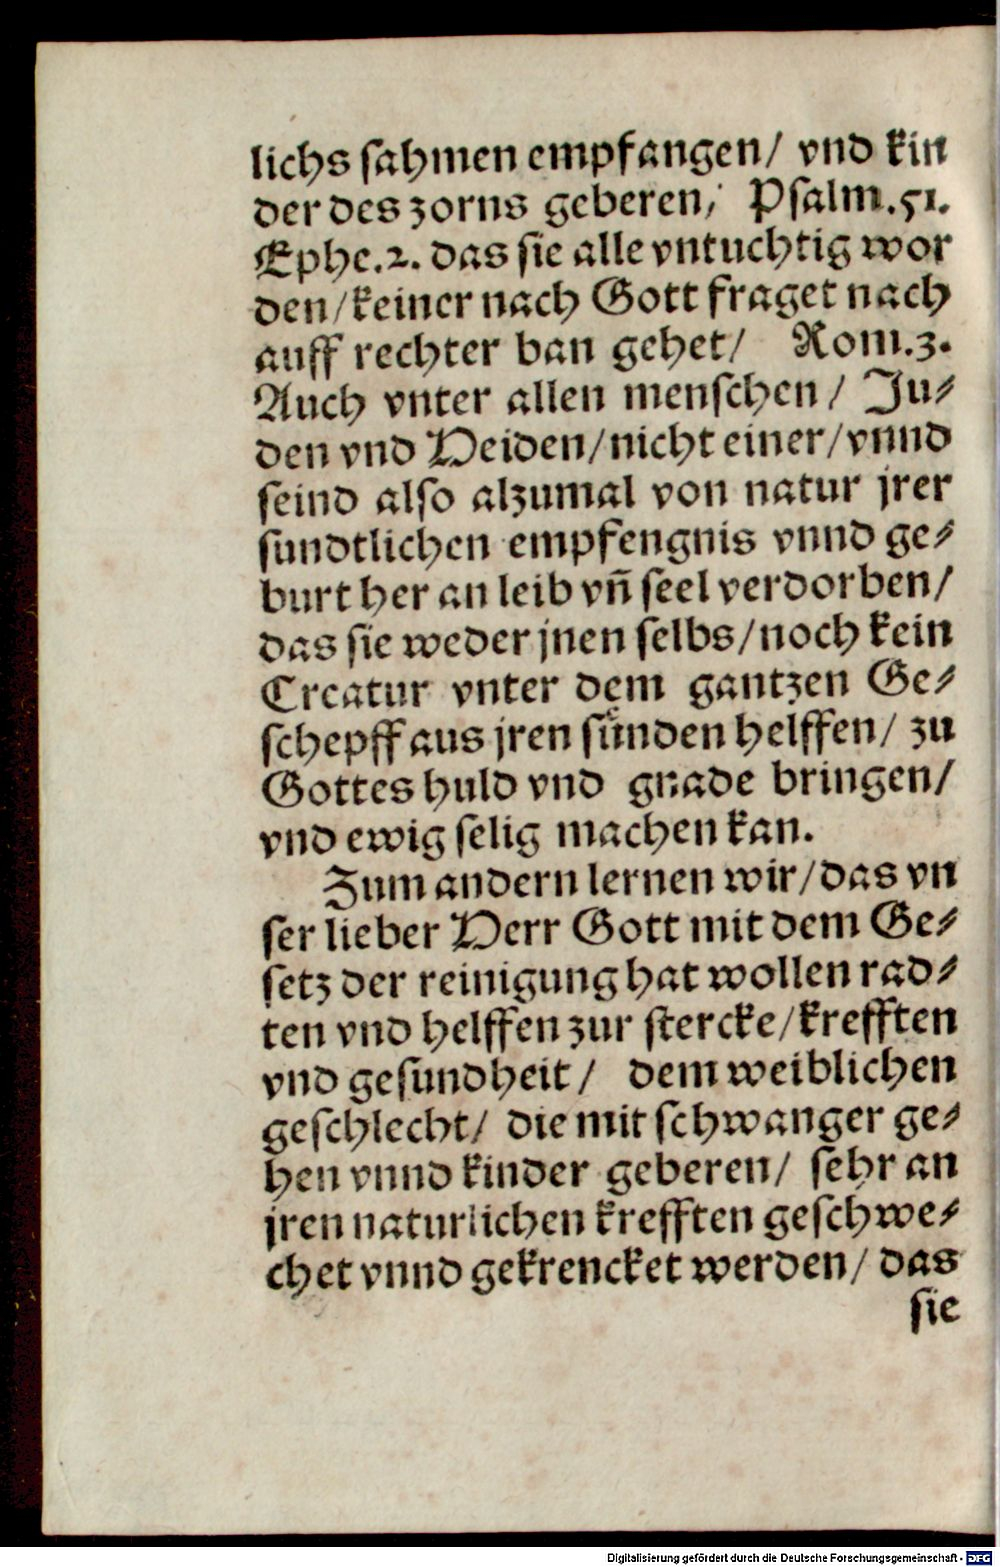 lichs sahmen empfangen/ vnd kin
der des zorns geberen/ Psalm.51.
Ephe.2. das sie alle vntuchtig wor
den/keiner nach Gott fraget nach
auff rechter ban gehet/ Rom.3.
Auch vnter allen menschen/ Ju⸗
den vnd Heiden/nicht einer/vnnd
seind also alzumal von natur jrer
sundtlichen empfengnis vnnd ge⸗
burt her an leib vn̄ seel verdorben/
das sie weder jnen selbs/noch kein
Creatur vnter dem gantzen Ge⸗
schepff aus jren suͤnden helffen/ zu
Gottes huld vnd gnade bringen/
vnd ewig selig machen kan.
Zum andern lernen wir/das vn
ser lieber Herr Gott mit dem Ge⸗
setz der reinigung hat wollen rad⸗
ten vnd helffen zur stercke/krefften
vnd gesundheit/ dem weiblichen
geschlecht/ die mit schwanger ge⸗
hen vnnd kinder geberen/ sehr an
jren naturlichen krefften geschwe⸗
chet vnnd gekrencket werden/ das
sie
Digitalisierung gefördert durch die Deutsche Forschungsgemeinschaft - DFG